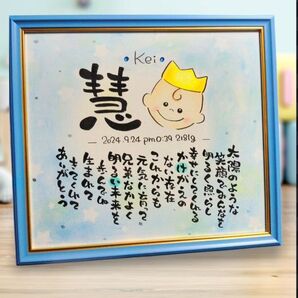 Kei
慧
2024.9.24 pm0:39 2681g
太陽のような
笑顔でみんなを
明るく照らし
幸せにしてくれる
かけがえの
ない存在
これからも
元気に育って
兄弟なかよく
明るい未来を
歩んでね
生まれて
きてくれて
ありがとう